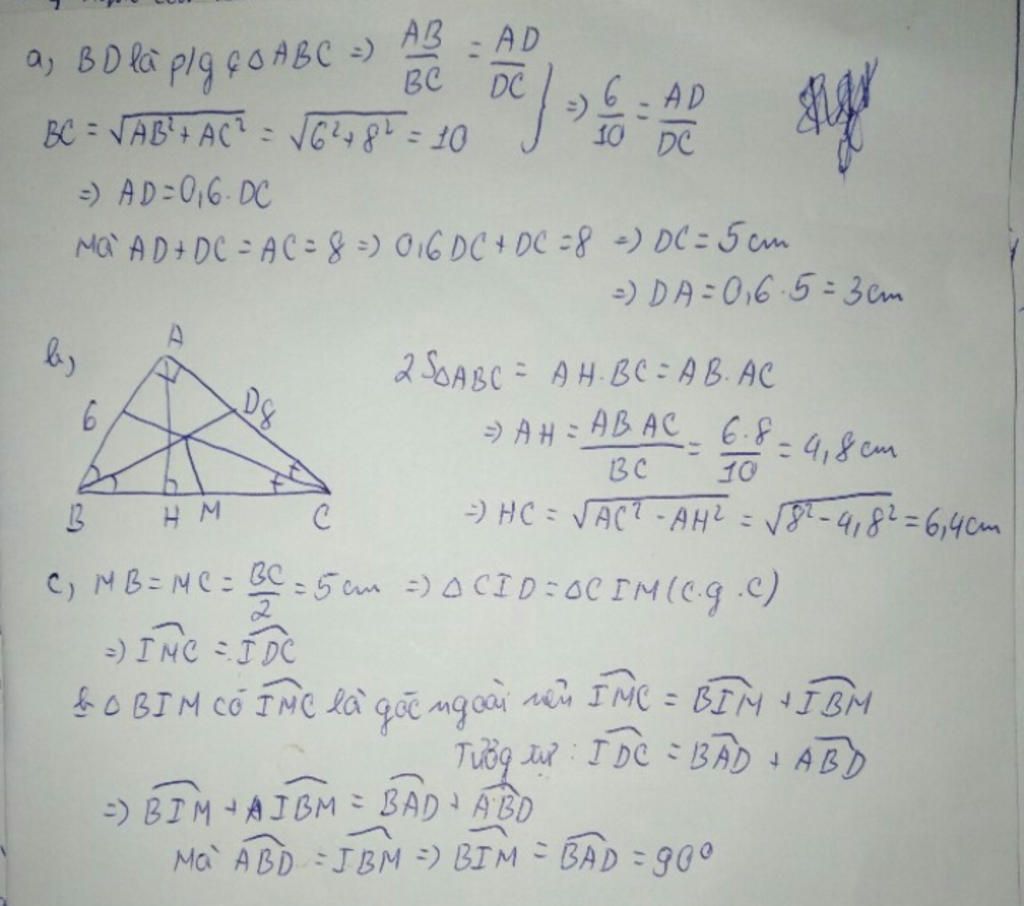 a, BD là p/g ç △ABC => AB/BC = AD/DC } => 6/10 = AD/DC
BC = √(AB² + AC²) = √(6² + 8²) = 10
=> AD = 0,6.DC
Mà AD + DC = AC = 8 => 0,6DC + DC = 8 => DC = 5cm
=> DA = 0,6.5 = 3cm
b,
A
6
D
8
B
H
M
C
2S△ABC = AH.BC = AB.AC
=> AH = AB AC/BC = 6.8/10 = 4,8cm
=> HC = √(AC² - AH²) = √(8² - 4,8²) = 6,4cm
c, MB = MC = BC/2 = 5cm => △CID = △CIM (c.g.c)
=> \widehat{IMC} = \widehat{IDC}
△BIM có \widehat{IMC} là góc ngoài nên \widehat{IMC} = \widehat{BIM} + \widehat{IBM}
Tương tự : \widehat{IDC} = \widehat{BAD} + \widehat{ABD}
=> \widehat{BIM} + \widehat{IBM} = \widehat{BAD} + \widehat{ABD}
Mà \widehat{ABD} = \widehat{IBM} => \widehat{BIM} = \widehat{BAD} = 90°